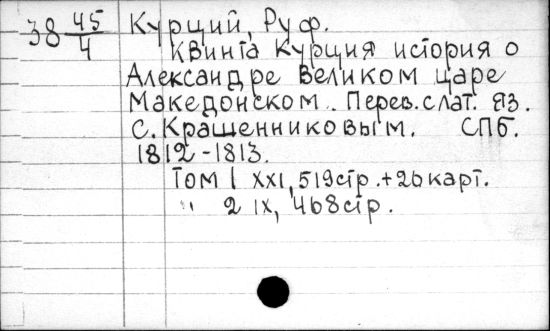 38 45/4 Курций, Руф.
Квинта Курция история о
Александре Великом царе
Македонском. Перев. с лат. яз.
С. Крашенниковым. СПб.
1812-1813.
Том 1 XXI, 519 стр. + 26 карт.
" 2 IX, 468 стр.